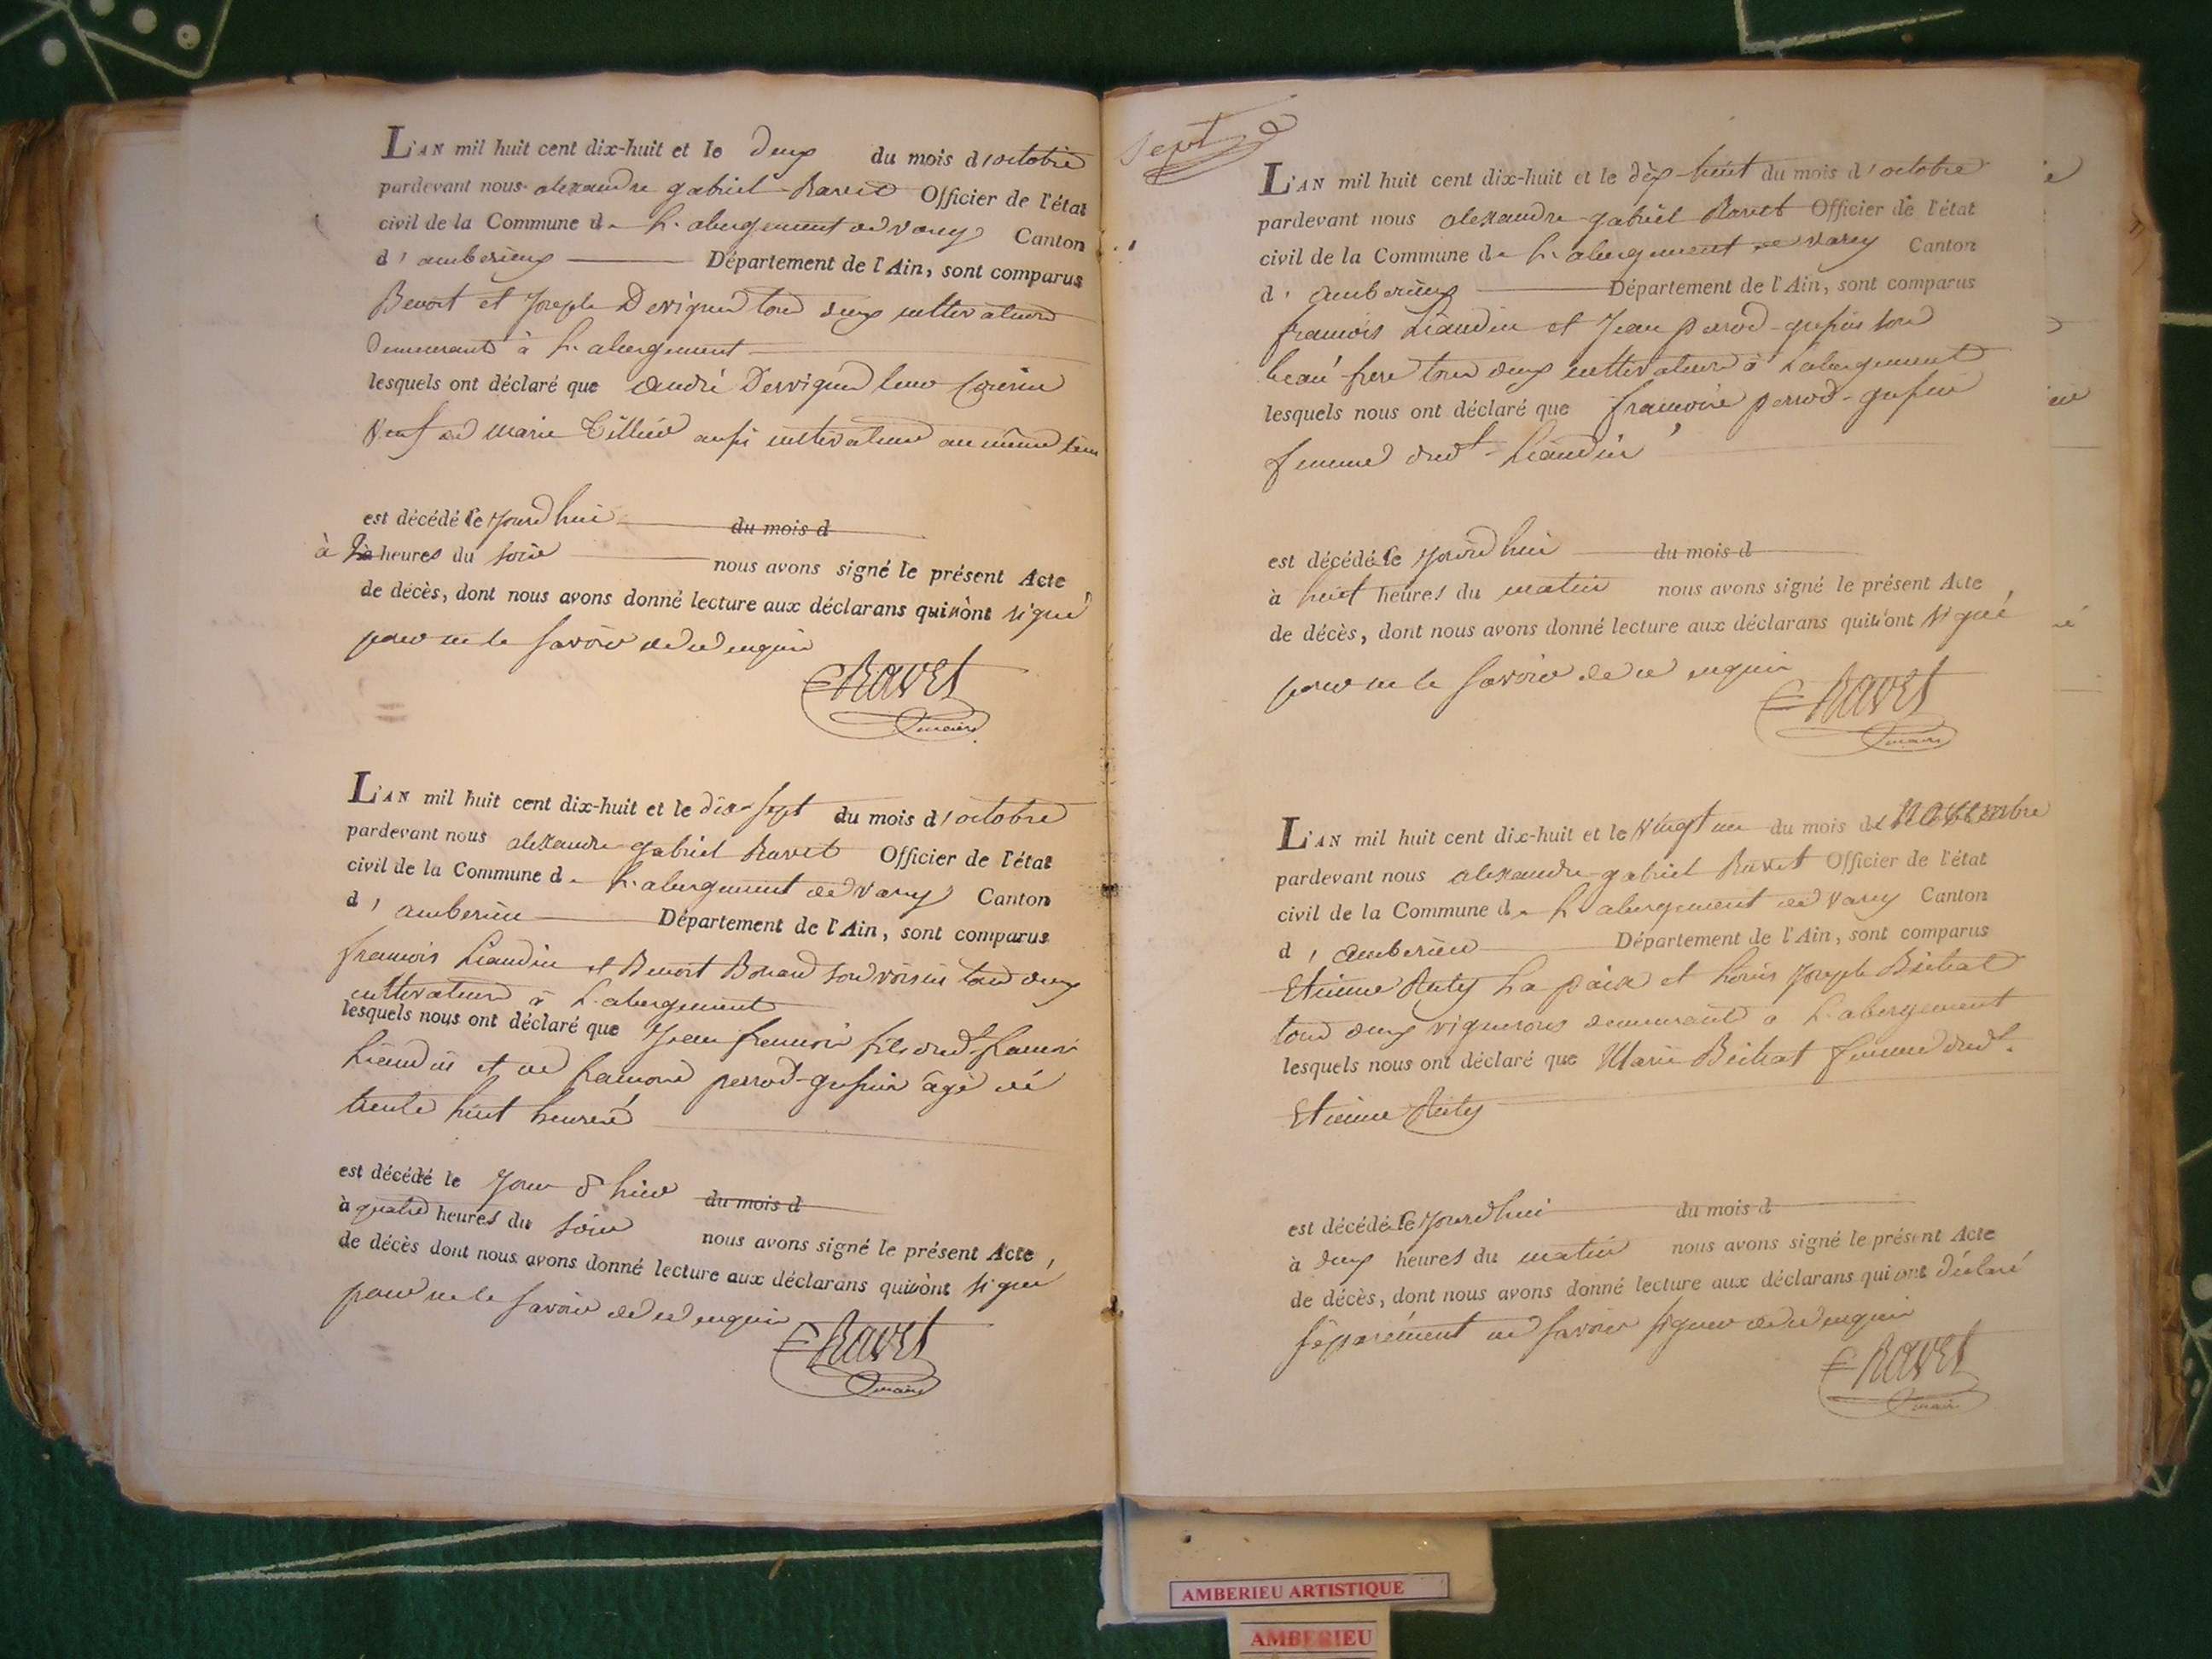 L'AN mil huit cent dix-huit et le deux du mois d'octobre
pardevant nous alexandre gabriel Ravet Officier de l'état
civil de la Commune de L'abergement de varey Canton
d'amberieux Département de l'Ain, sont comparus
Benoit et Joseph Dervigue tous deux cultivateurs
Demeurants à L'abergement
lesquels ont déclaré que andré Dervigue leur Cousin
veuf de Marie aussi cultivateur au même lieu
est décédé le jourd'hui du mois d
à heures du soir nous avons signé le présent Acte
de décès, dont nous avons donné lecture aux déclarans qui n'ont signé
pour ne le savoir de ce enquis
Ravet
maire
L'AN mil huit cent dix-huit et le dix-sept du mois d'octobre
pardevant nous alexandre gabriel Ravet Officier de l'état
civil de la Commune de L'abergement de varey Canton
d'amberieu Département de l'Ain, sont comparus
francois Liaudin et Benoit Bonard son voisin tous deux
cultivateurs à L'abergement
lesquels nous ont déclaré que Jean francois fils dud. francois
Liaudin et de francoise perrod-gupin âgé de
trente huit heures
est décédé le Jour d'hier du mois d
à quatre heures du soir nous avons signé le présent Acte
de décès dont nous avons donné lecture aux déclarans qui n'ont signé
pour ne le savoir de ce enquis
Ravet
maire
Sept
L'AN mil huit cent dix-huit et le dix-huit du mois d'octobre
pardevant nous alexandre gabriel Ravet Officier de l'état
civil de la Commune de L'abergement de varey Canton
d'amberieux Département de l'Ain, sont comparus
francois Liaudin et Jean perrod-gupin son
beau-frere tous deux cultivateurs à Labergement
lesquels nous ont déclaré que francoise perrod-gupin
femme dud. Liaudin
est décédé le jourd'hui du mois d
à huit heures du matin nous avons signé le présent Acte
de décès, dont nous avons donné lecture aux déclarans qui n'ont signé
pour ne le savoir de ce enquis
Ravet
maire
L'AN mil huit cent dix-huit et le vingt un du mois de novembre
pardevant nous alexandre gabriel Ravet Officier de l'état
civil de la Commune de L'abergement de varey Canton
d'amberieu Département de l'Ain, sont comparus
Etienne La paix et Louis Joseph Bichat
tous deux vignerons demeurants à L'abergement
lesquels nous ont déclaré que Marie Bichat femme dud.
Etienne
est décédé le jourd'hui du mois d
à deux heures du matin nous avons signé le présent Acte
de décès, dont nous avons donné lecture aux déclarans qui ont déclaré
séparément ne savoir signer de ce enquis
Ravet
maire
AMBERIEU ARTISTIQUE
AMBERIEU